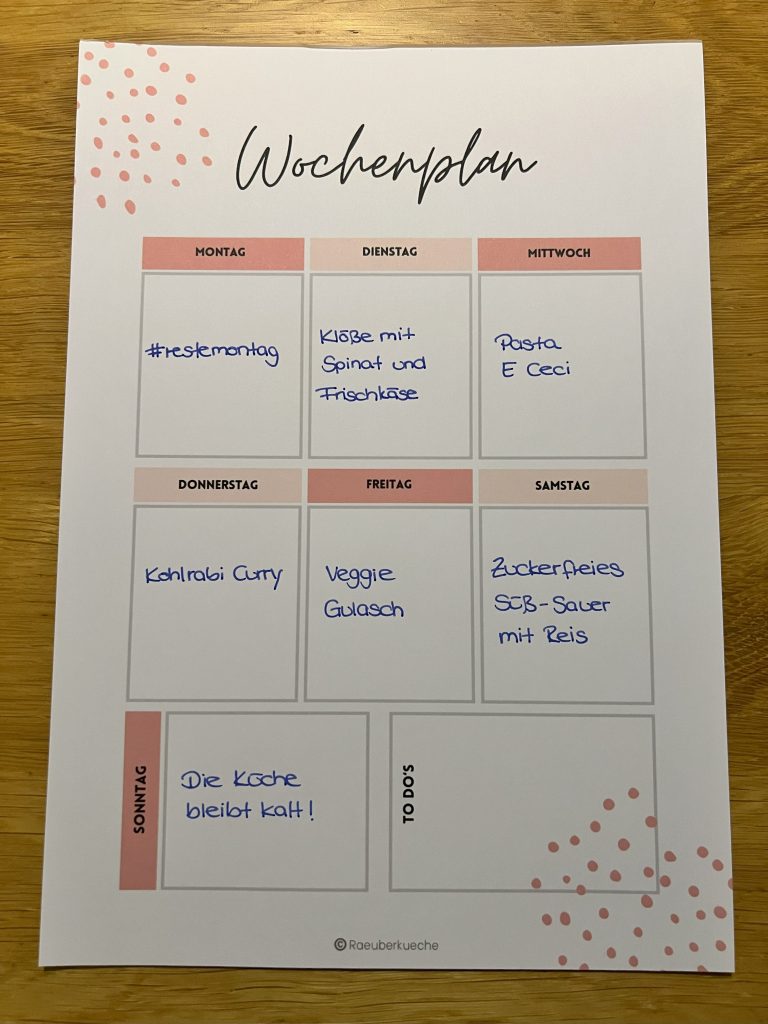 Wochenplan
MONTAG
DIENSTAG
MITTWOCH
#restemontag
Klöße mit
Spinat und
Frischkäse
Pasta
E Ceci
DONNERSTAG
FREITAG
SAMSTAG
Kohlrabi Curry
Veggie
Gulasch
Zuckerfreies
Süß-Sauer
mit Reis
SONNTAG
Die Küche
bleibt kalt!
TO DO'S
© Raeuberkueche